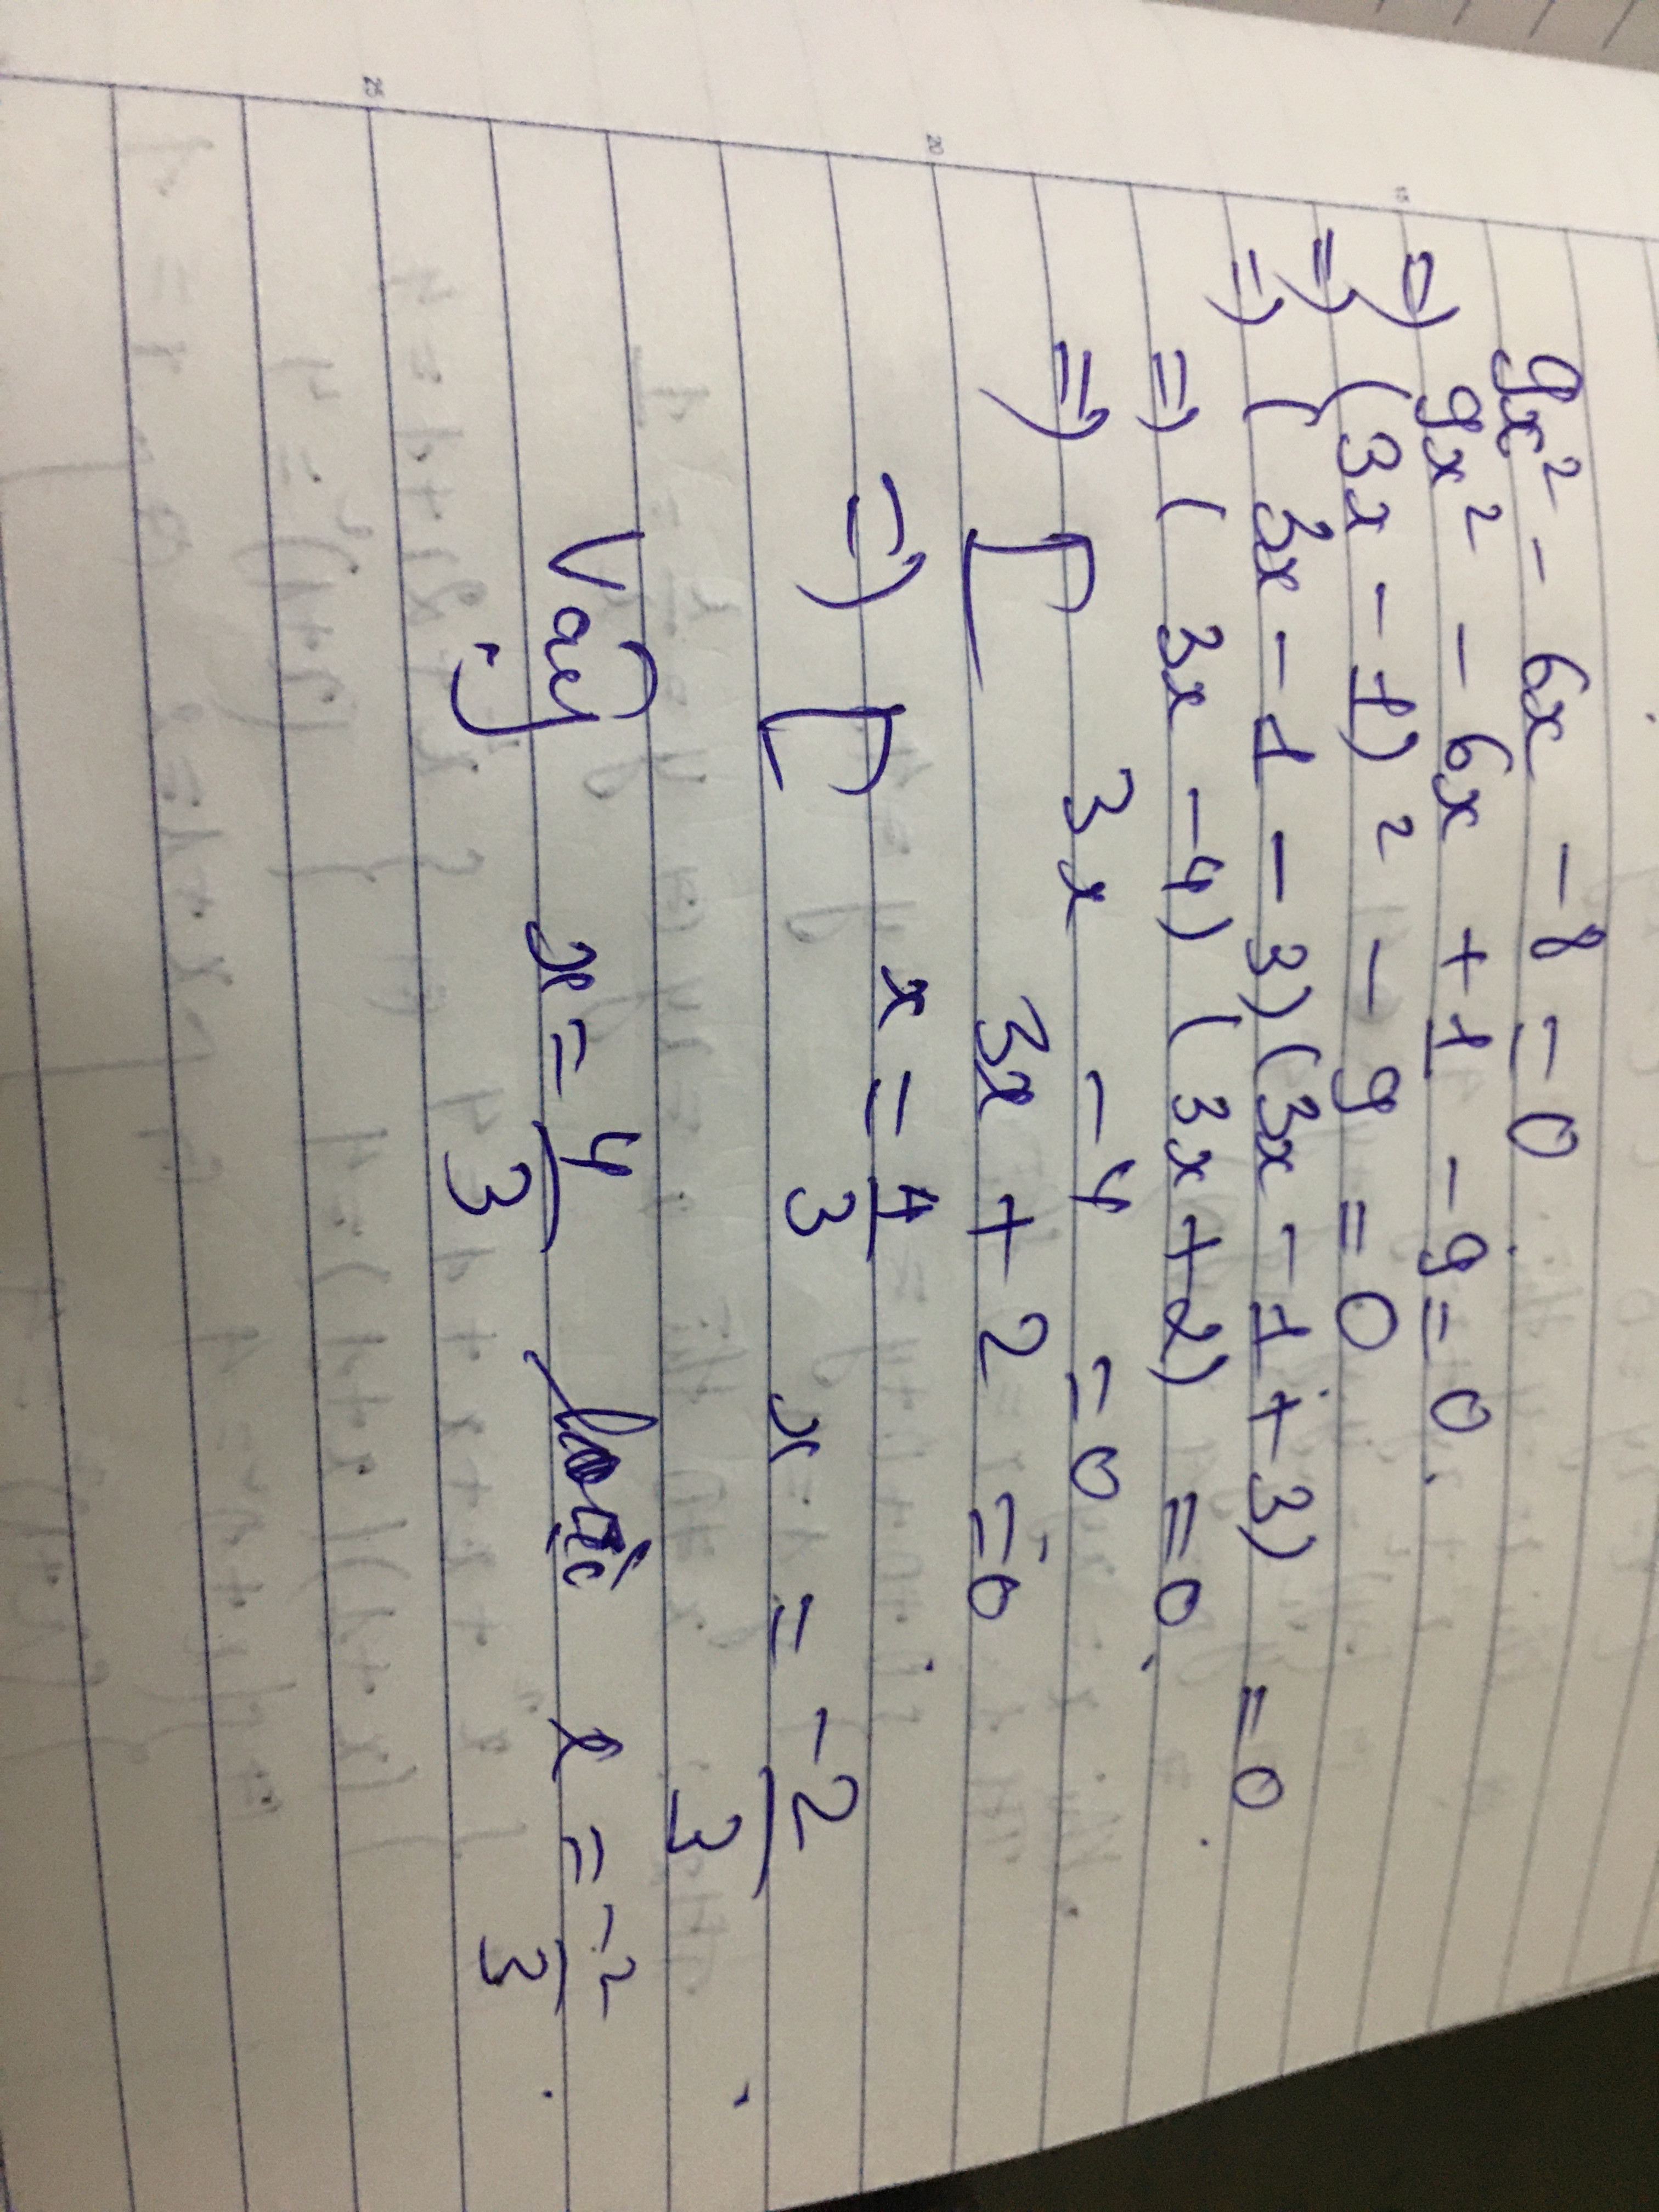 9x² - 6x - 8 = 0
=) 9x² - 6x + 1 - 9 = 0.
=) (3x - 1)² - 9 = 0
=) (3x - 1 - 3)(3x - 1 + 3) = 0
=) (3x - 4)(3x + 2) = 0
=) [ 3x - 4 = 0
3x + 2 = 0
=) [ x = 4/3
x = -2/3
Vậy x = 4/3 hoặc x = -2/3
15
20
25